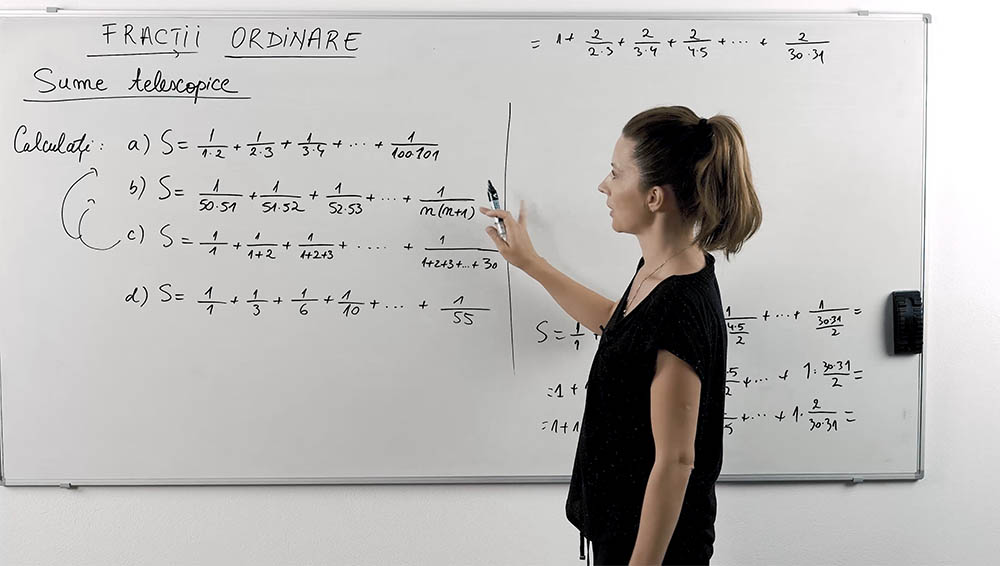 FRACȚII ORDINARE
Sume telescopice
Calculați: a) S = 1/1·2 + 1/2·3 + 1/3·4 + ... + 1/100·101
b) S = 1/50·51 + 1/51·52 + 1/52·53 + ... + 1/n(n+1)
c) S = 1/1 + 1/1+2 + 1/1+2+3 + .... + 1/1+2+3+...+30
d) S = 1/1 + 1/3 + 1/6 + 1/10 + ... + 1/55
= 1 + 2/2·3 + 2/3·4 + 2/4·5 + ... + 2/30·31
S = 1/1 + 1/(4·5/2) + ... + 1/(30·31/2) =
= 1 + ... + 1· 30·31/2 =
= 1 + 1 + ... + 1· 2/30·31 =